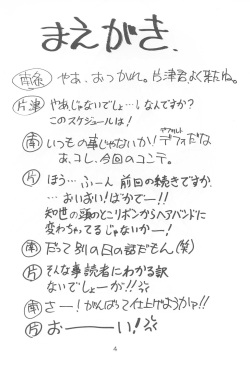 まえがき.
南糸 やぁ、おつかれ。片津君よく来たね。
片津 やぁじゃないでしょ…!なんですか?
このスケジュールは!
南 いつもの事じゃないか!デフォだな
デフォルト
あ、コレ、今回のコンテ。
片 ほう…ふーん 前回の続きですか
…おいおい!ばかでー!!
知世の頭のとこリボンからヘアバンドに
変わちゃてるじゃないかー!
南 だって別の日の話だもん。(笑)
片 そんな事読者にわかる訳
ないでしょーが!!
南 さー!がんばって仕上げようかァ!!
片 おーーーい!
4